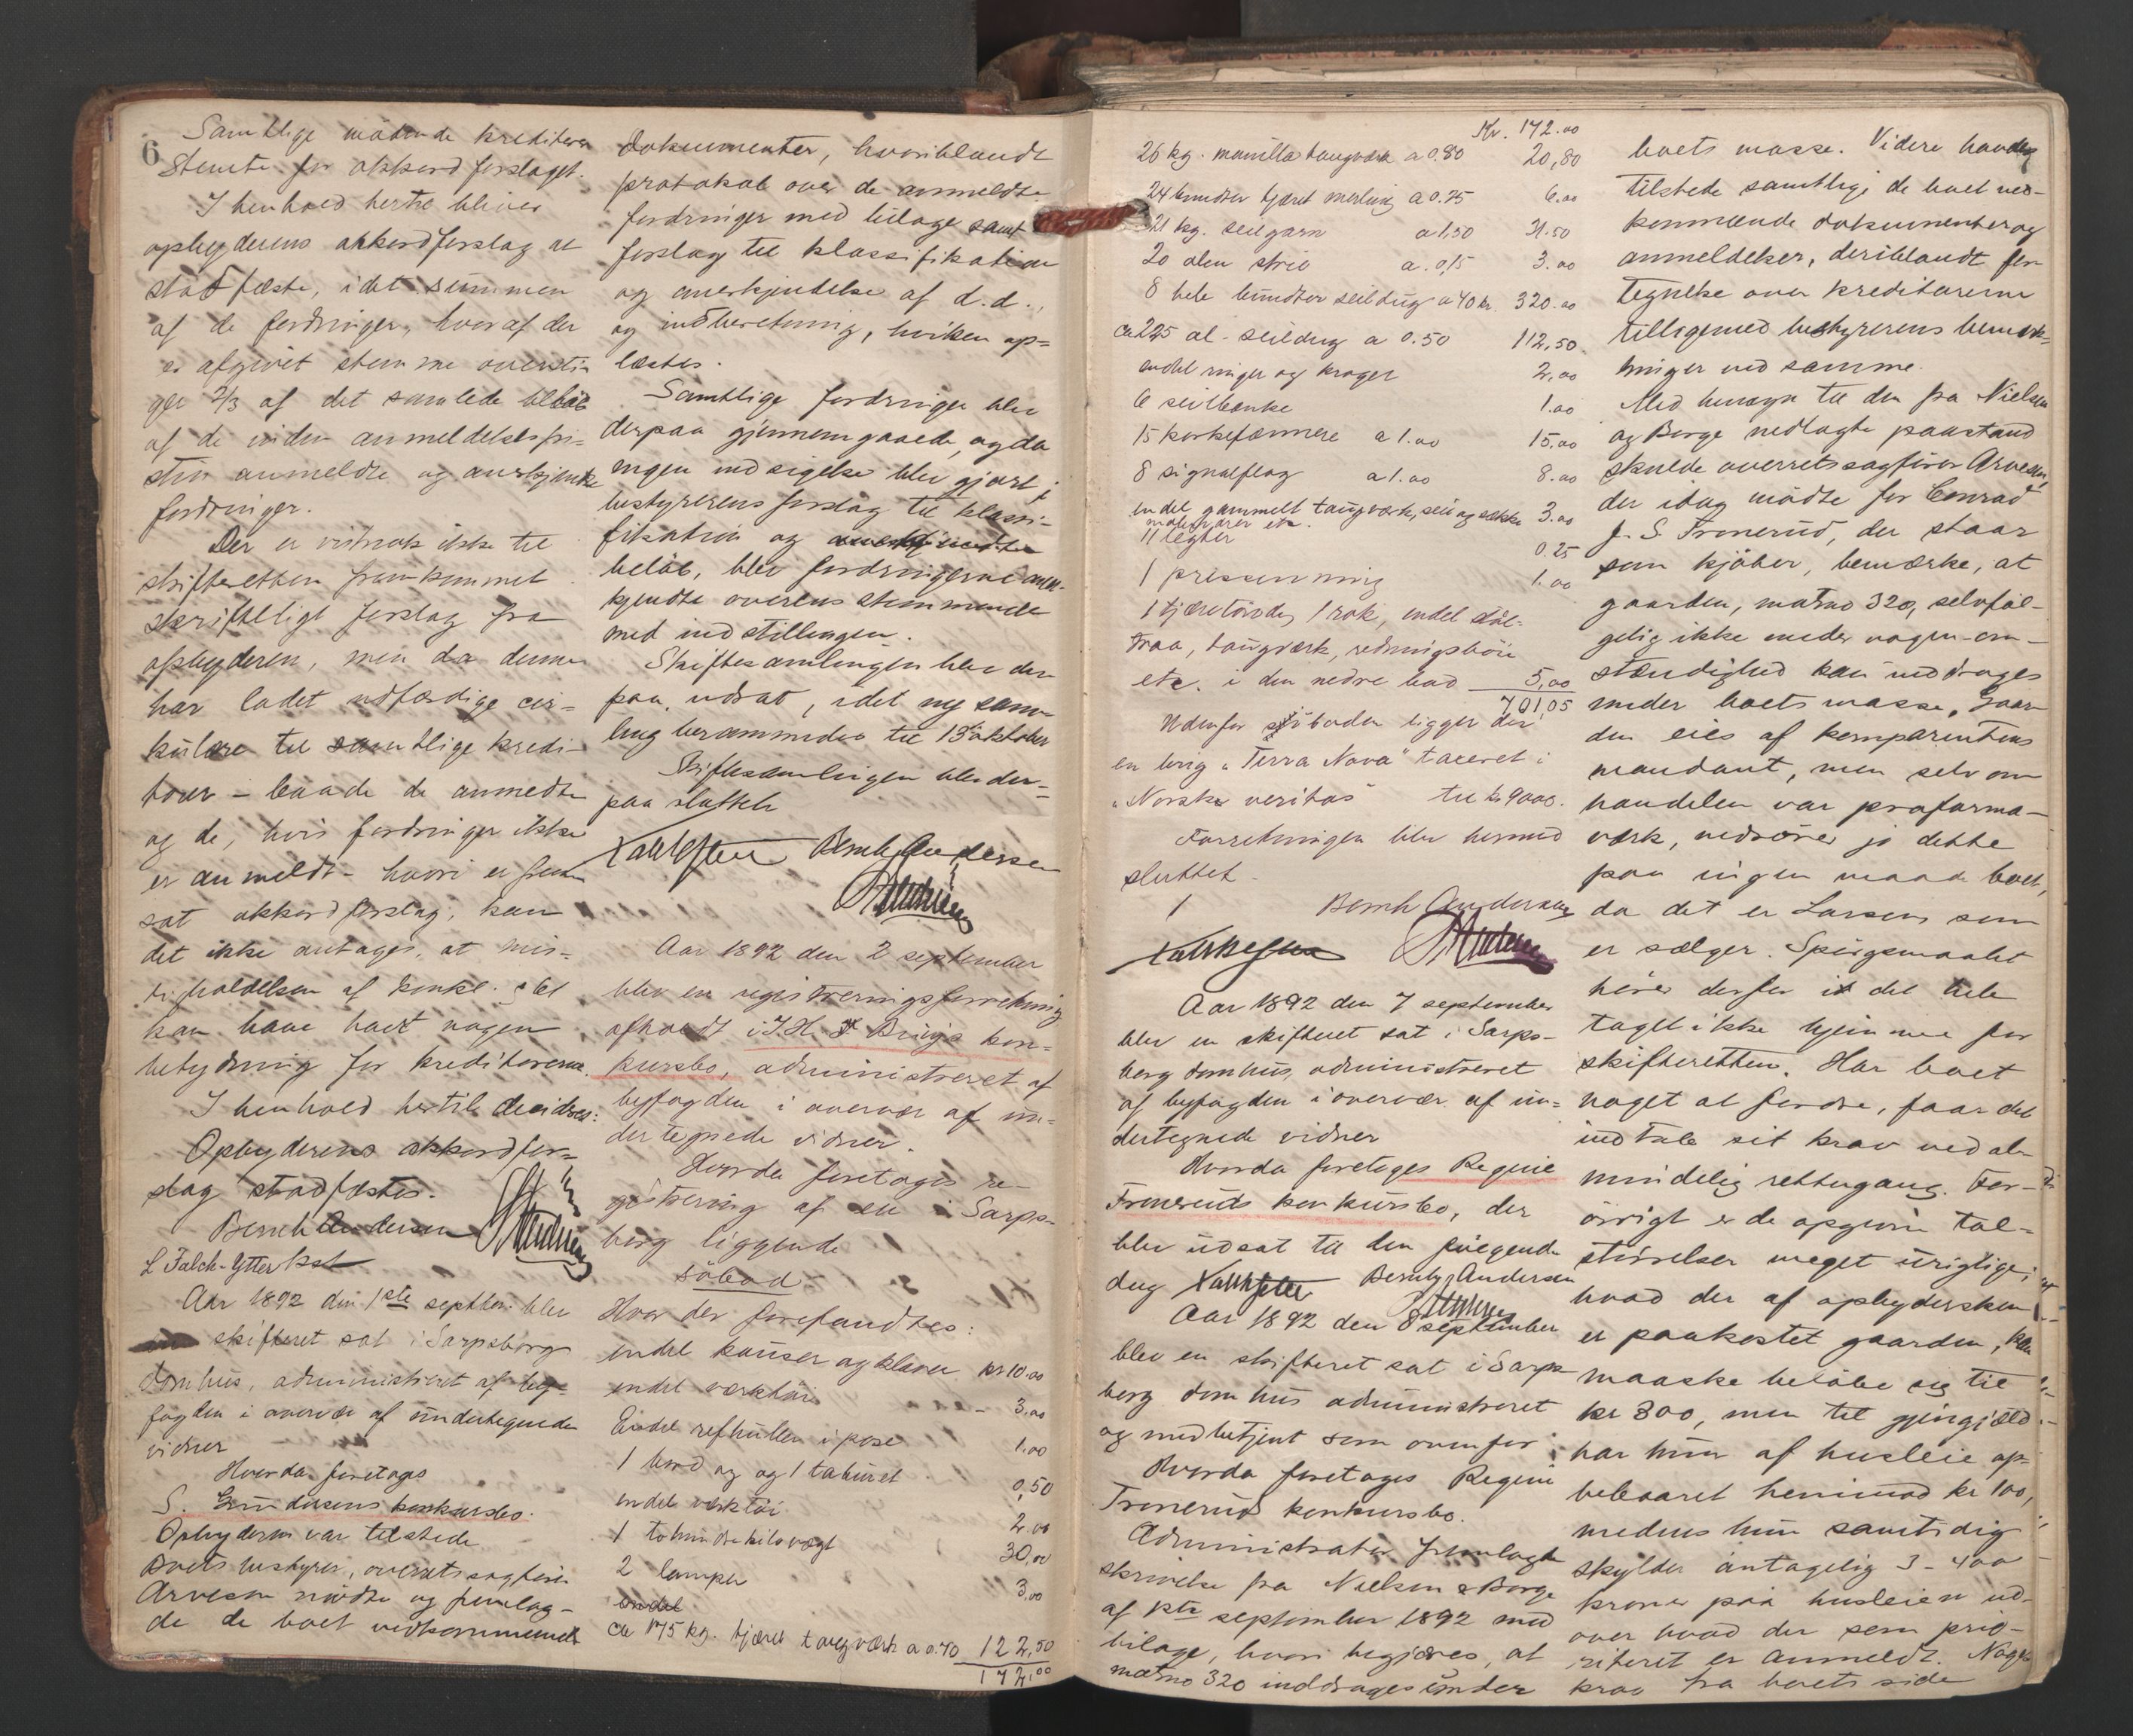 6
Samtlige mødende kreditorer
stemte for akkordforslaget.
I henhold hertil bliver
opbyderens akkordforslag at
stadfæste, idet summen
af de fordringer, hvoraf der
er afgivet stemme oversti-
ger 2/3 af det samlede beløb
af de inden anmeldelsesfri-
sten anmeldte og anerkjendte
fordringer.
Der er vistnok ikke til
skifteretten fremkommet
skriftligt forslag fra
opbyderen, men da denne
har ladet udfærdige cir-
kulære til samtlige kredi-
torer – baade de anmeldte
og de, hvis fordringer ikke
er anmeldt – hvori er frem
sat akkordforslag, kan
det ikke antages, at mis-
ligholdelsen af konkl. §
kan have havt nogen
betydning for kreditorerne.
I henhold hertil decideres:
Opbyderens akkordfor-
slag stadfæstes.
Bernh Andersen
L Falch-Ytter
Aar 1892 den 1ste septbr. blev
en skifteret sat i Sarpsborg
domhus, administreret af by-
fogden i overvær af undertegnede
vidner
Hvorda foretoges
S. Gundersens konkursbo.
Opbyderen var tilstede
Boets bestyrer, overretssagfører
Arvesen mødte og fremlag-
de de boet vedkommende
dokumenter, hvoriblandt
protokol over de anmeldte
fordringer med bilage samt
forslag til klassifikation
og anerkjendelse af d.d.,
og indberetning, hvilken op-
læstes.
Samtlige fordringer blev
derpaa gjennemgaaede, og da
ingen indsigelse blev gjort i
bestyrerens forslag til klassi-
fikation og anerkjendte
beløb, blev fordringerne aner-
kjendte overensstemmende
med indstillingen.
Skiftesamlingen blev der
paa udsat, idet ny sam-
ling berammedes til 13de oktober
Skiftesamlingen blev der-
paa sluttet
Bernh Andersen
Aar 1892 den 2 september
blev en registreringsforretning
afholdt i J.H. Brügs kon-
kursbo, administreret af
byfogden i overvær af un-
dertegnede vidner.
Hvorda foretoges re-
gistrering af en i Sarps-
borg liggende
søbod
Hvor der forefandtes:
endel kauser og klaver kr 10.00
endel værktøi – 3,00
Endel refhuller i pose 1.00
1 bord og og 1 taburet 0,50
endel værktøi 2.00
1 tohundrekilosvægt 30,00
2 lamper 3,00
endel
ca 175 kg. tjæret taugværk a 0.70 122,50
172,00
Kr. 172.00
26 kg. manilla taugværk a 0.80 20,80
24 bundter tjæret merling a 0.25 6.00
21 kg. seilgarn a 1,50 31.50
20 alen strie a. 0,15 3.00
8 hele bundter seildug a 40 kr. 320.00
ca 225 al. seildug a 0.50 112,50.
endel ringer og kroger 2,00
6 seilbænke 1.00
15 korkefærmere a 1.00 15,00
8 signalflag a 1.00 8.00
endel gammelt taugværk, seil og sække 3.00
11 lægter 0.25
1 presenning 1.00
1 tjæretønde, 1 rok, endel stål-
traa, taugværk, redningsbøie
etc. i den nedre bod 5,00
701,05
Udenfor søboden ligger der
en brig „Terra Nova" taxeret i
„Norske veritas" til kr 9000.
Forretningen blev hermed
sluttet.
Bernh Andersen
Aar 1892 den 7 september
blev en skifteret sat i Sarps-
borg domhus, administreret
af byfogden i overvær af un-
dertegnede vidner
Hvorda foretoges Regine
Tronerud's konkursbo, der
blev udsat til den følgende
dag Bernh Andersen
Aar 1892 den 8 september
blev en skifteret sat i Sarps-
borg domhus administreret
og medbetjent som ovenfor
Hvorda foretoges Regine
Tronerud konkursbo.
Administrator fremlagde
skrivelse fra Nielsen & Borge
af 1ste september 1892 med
bilage, hvori begjæres, at
matrno 320 inddrages under
boets masse. Videre havdes
tilstede samtlige de boet ved-
kommende dokumenter og
anmeldelser, deriblandt for-
tegnelse over kreditorerne
tilligemed bestyrerens bemærk-
ninger ved samme.
Med hensyn til den fra Nielsen
og Borge nedlagte paastand
skulde overretssagfører Arvesen,
der idag mødte for Conrad
J. S. Tronerud, der staar
som kjøber, bemærke, at
gaarden, matrno 320, selvføl-
gelig ikke under nogen om-
stændighed kan inddrages
under boets masse. Gaar-
den eies af komparentens
mandant, men selv om
handelen var proforma-
værk, vedrører jo dette
paa ingen maade boet,
da det er Larsen som
er sælger. Spørgsmaalet
hører derfor i det hele
taget ikke hjemme for
skifteretten. Har boet
noget at fordre, faar det
indtale sit krav ved al-
mindelig rettergang. For-
øvrigt er de opgivne tal-
størrelser meget urigtige;
hvad der af opbydersken
er paakostet gaarden, kan
maaske beløbe sig til
kr 300, men til gjengjæld
har hun af husleie op-
bebaaret henimod kr 100,
medens hun samtidig
skylder antagelig 3–400
kroner paa husleien ud-
over hvad der som prio-
riteret er anmeldt. Noget
krav fra boets side